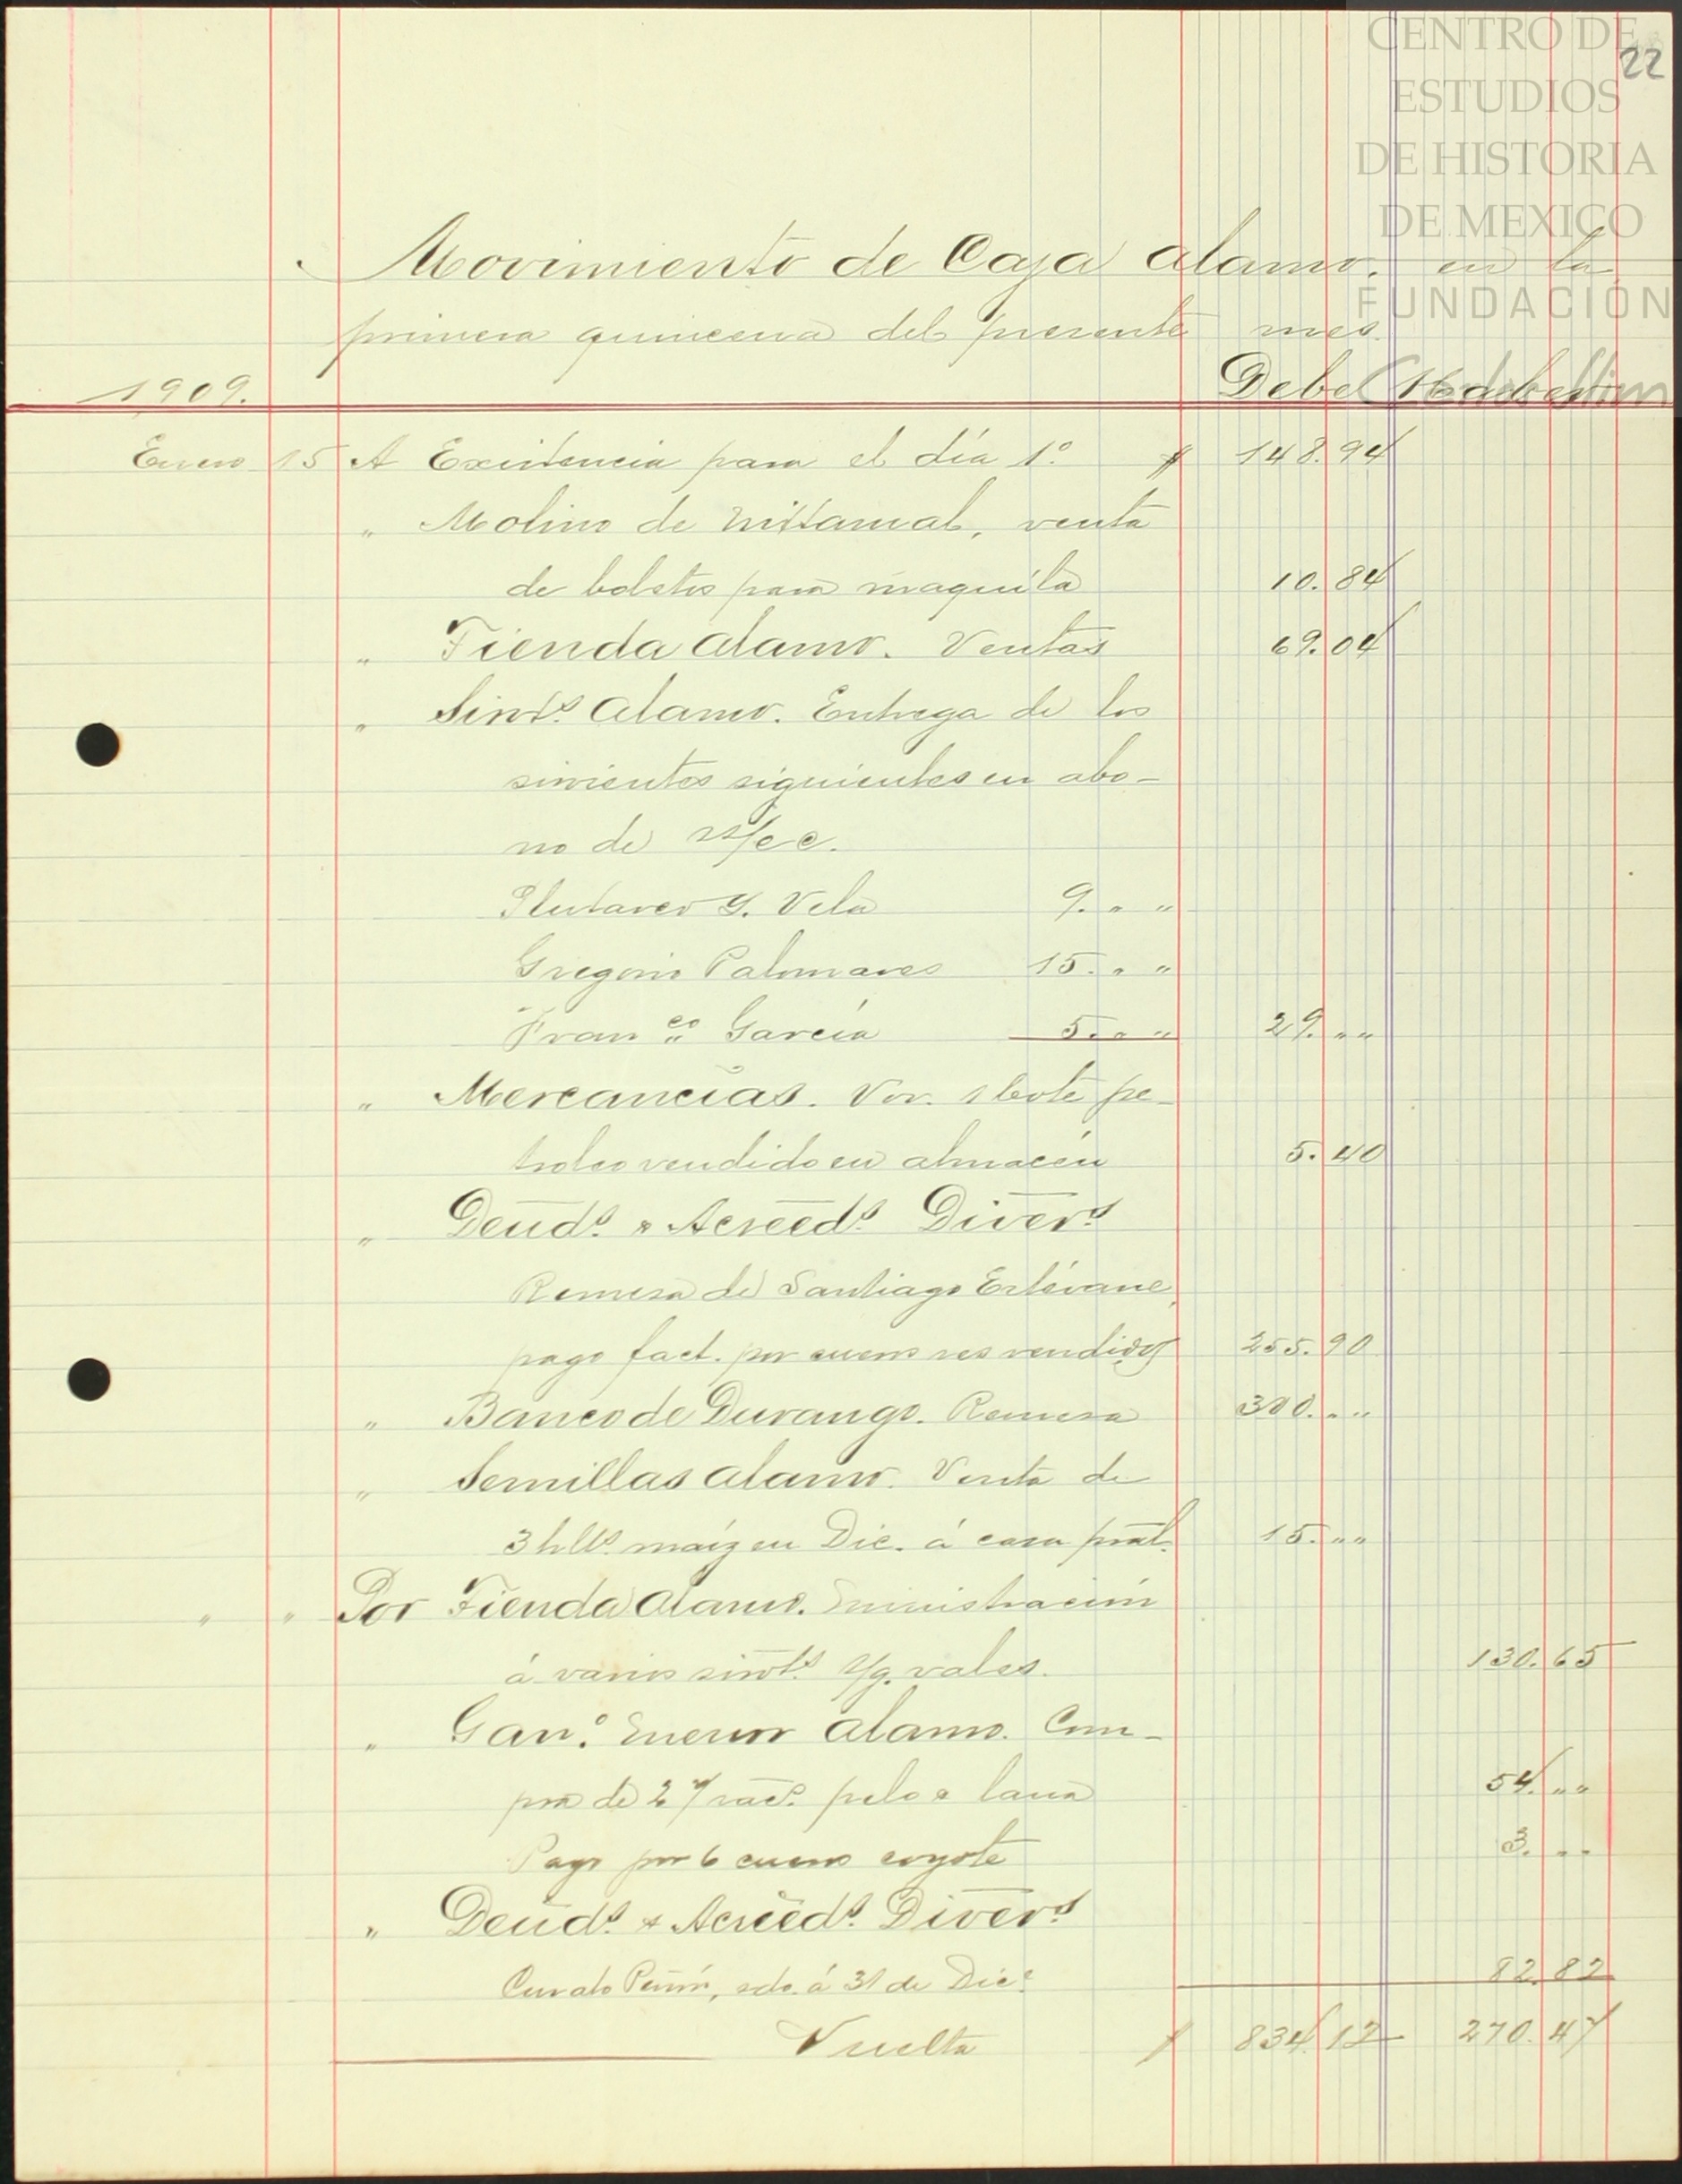 CENTRO DE
ESTUDIOS
DE HISTORIA
DE MEXICO
FUNDACIÓN
22
Movimiento de Caja Alamo. en la
primera quincena del presente mes.
1909. Debe Haber
Enero 15 A Existencia para el día 1º $ 148.94
" Molino de Nixtamal, venta
de boletos para maquila 10.84
" Tienda Alamo. Ventas 69.04
" Sirvts. Alamo. Entrega de los
sirvientes siguientes en abo-
no de ss/cc.
Plutarco G. Vela 9. " "
Gregorio Palomares 15. " "
Franco. García 5. " " 29. " "
" Mercancías. Vor. 1 bote pe-
troleo vendido en almacén 5.40
" Deuds. & Acreeds. Divers.
Remesa de Santiago Estévane,
pago fact. por cueros res vendidos 255.90
" Banco de Durango. Remesa 300. " "
" Semillas Alamo. Venta de
3 hlts. maíz en Dic. á casa pral. 15. " "
" " Por Tienda Alamo. Suministración
á varios sirvts. s/g. vales. 130.65
" Gano. menor Alamo. Com-
pra de 27 racs. pelo & lana 54. " "
Pago por 6 cueros coyote 3. " "
" Deuds. & Acreeds. Divers.
Curato Peñón, sdo. á 31 de Dice. 82.82
Vuelta $ 834.12 270.47